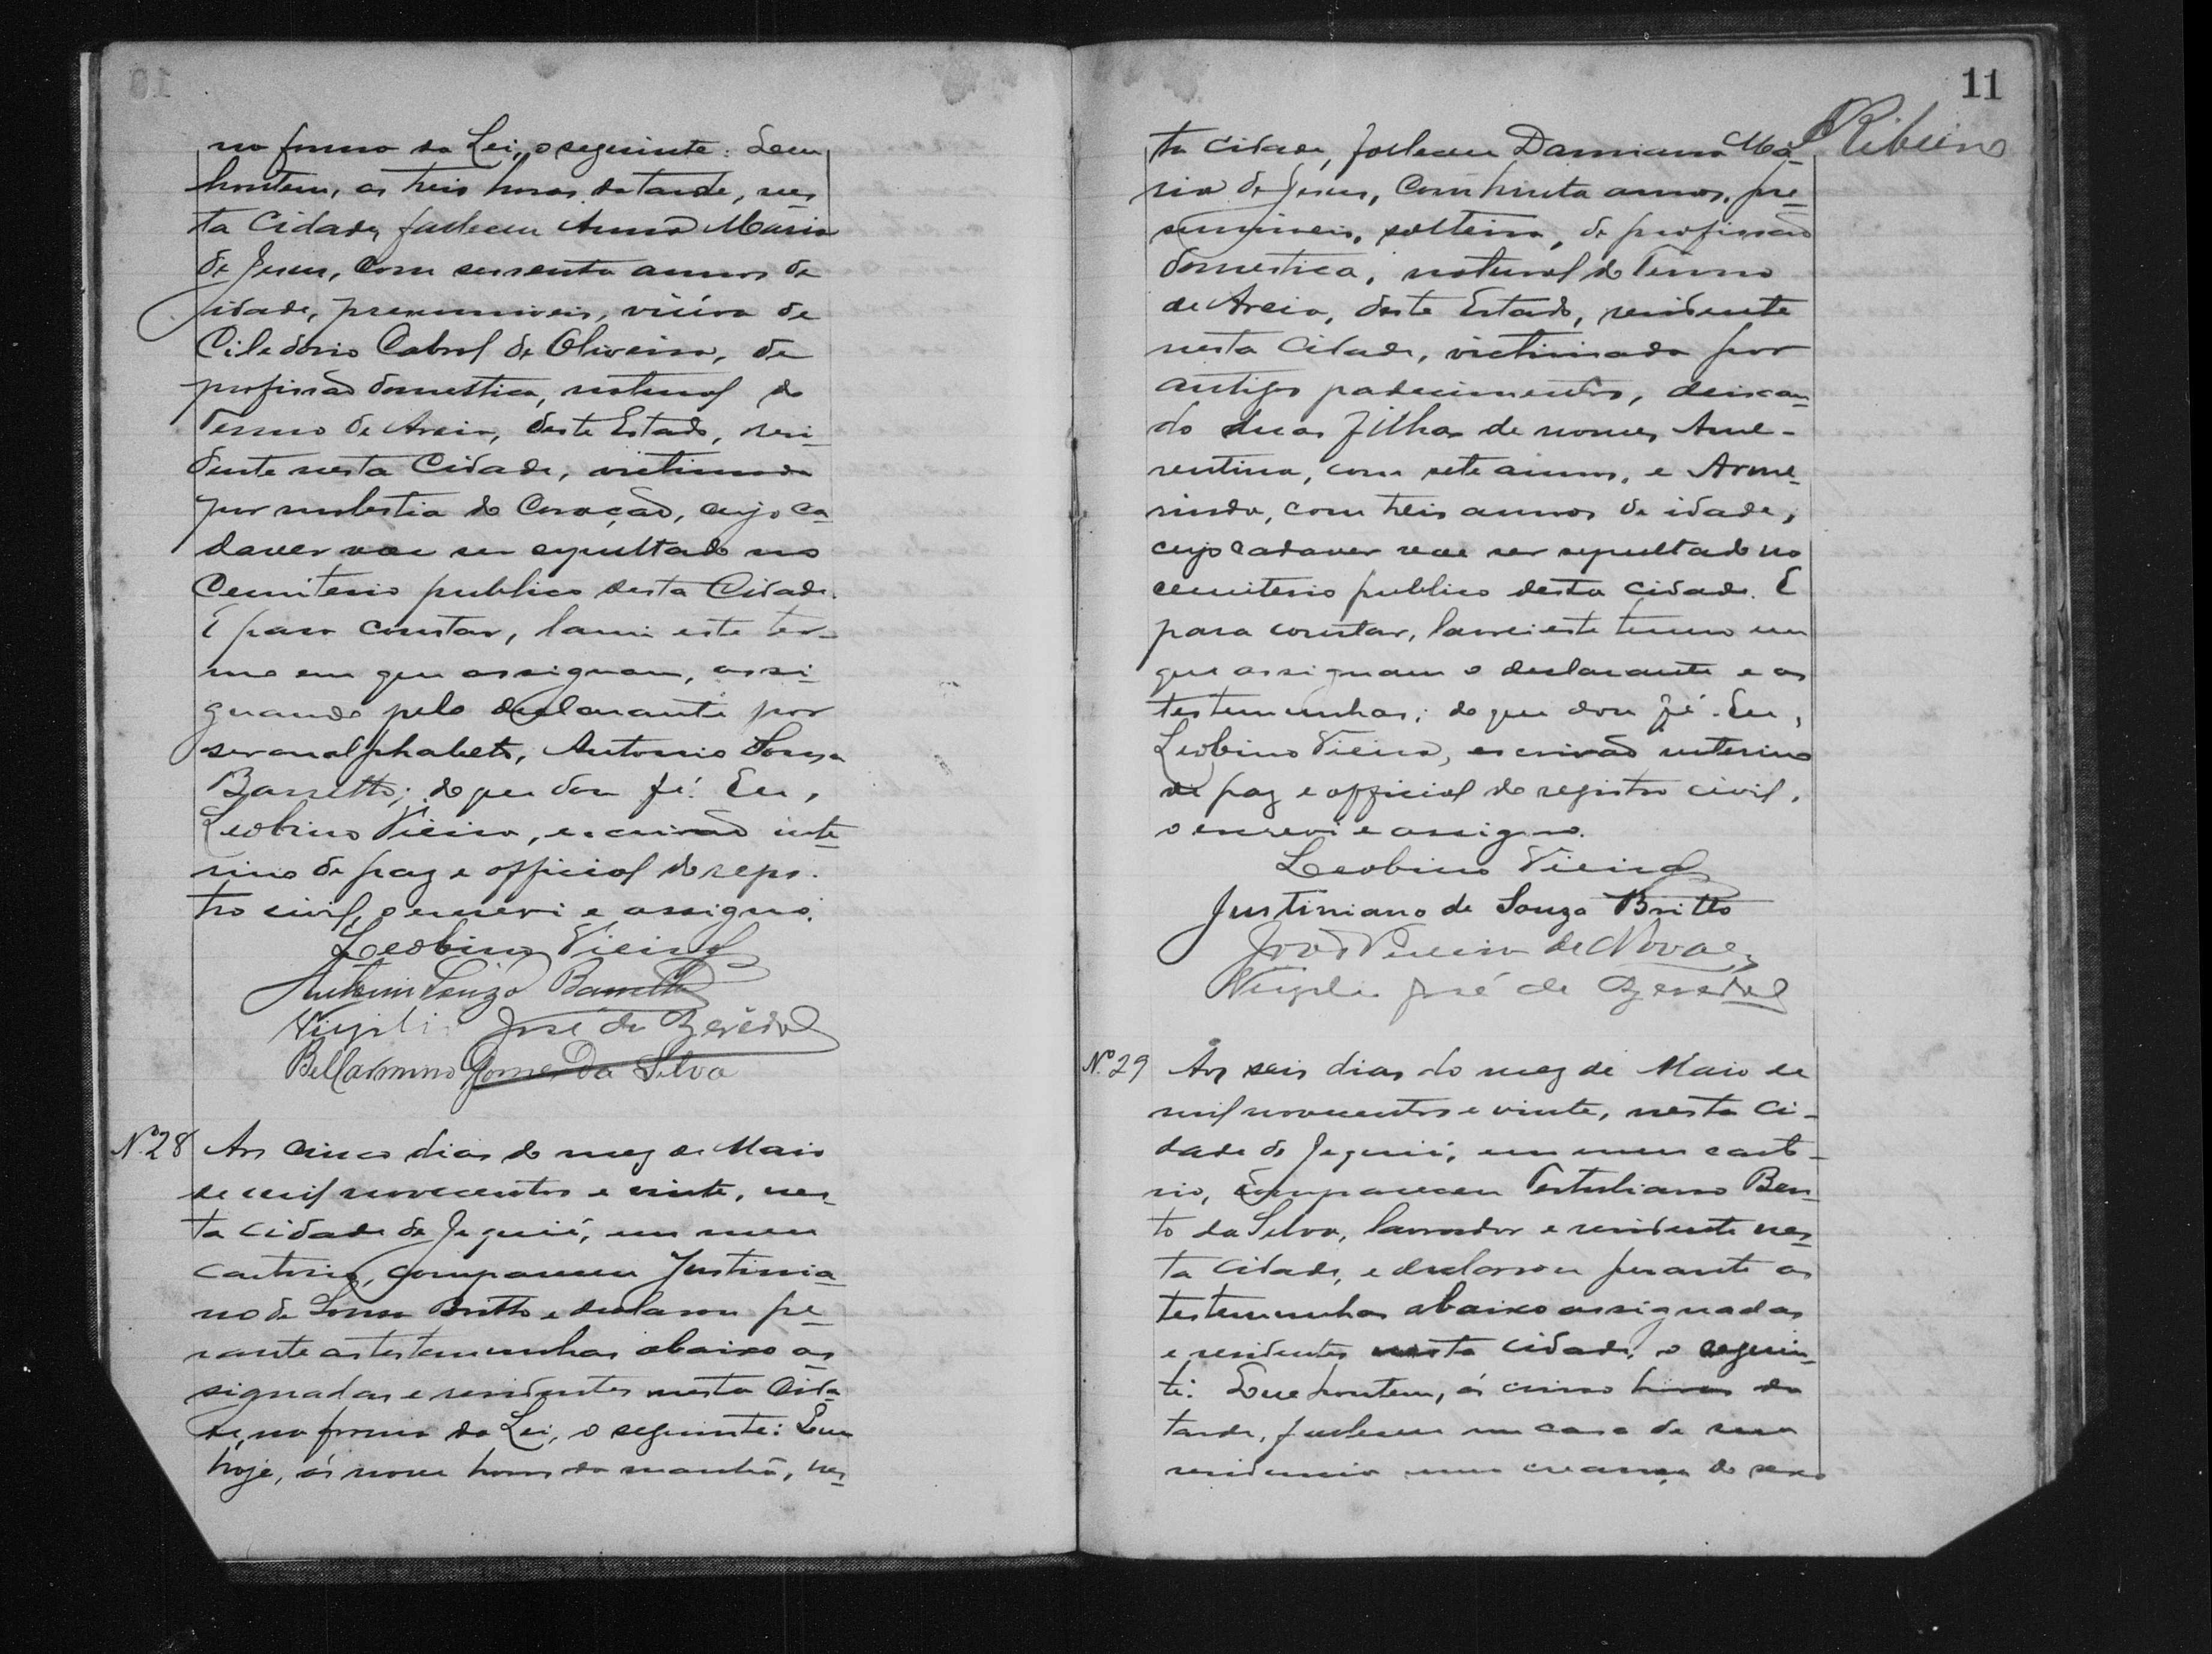 na forma da Lei, o seguinte: Que
hontem, as treis horas da tarde, nes
ta Cidade, falleceu Anna Maria
de Jesus, com sessenta annos de
idade, presumiveis, viúva de
Ciledonio Cabral de Oliveira, de
profissão domestica, natural do
Termo de Areia, deste Estado, resi-
dente nesta Cidade, victimada
por molestia do Coração, cujo ca
daver vae ser sepultado no
Cemiterio publico desta Cidade.
E para constar, lavrei este ter-
mo em que assignam, assi-
gnando pelo declarante por
ser analphabeto, Antonio Souza
Barretto; do que dou fé. Eu,
Leobino Vieira, escrivão inte
rino de paz e official do regis-
tro civil, o escrevi e assigno.
Leobino Vieira
Antonio Souza Barretto
Virgilio José de Azevêdo
Bellarmino Gomes da Silva
Nº 28 Aos cinco dias do mez de Maio
de mil novecentos e vinte, nes
ta cidade de Jequié, em meu
cartorio, compareceu Justinia
no de Souza Britto e declarou pe
rante as testemunhas abaixo as
signadas e residentes nesta Cida
de, na forma da Lei, o seguinte: Que
hoje, ás nove horas da manhã, nes
11
Ribeiro
ta cidade, falleceu Damiana Ma
ria de Jesus, com trinta annos, pre
sumiveis, solteira, de profissão
domestica, natural do Termo
de Areia, deste Estado, residente
nesta Cidade, victimada por
antigos padecimentos, deixan
do duas filhas de nomes Ame-
rentina, com sete annos, e Arme
rinda, com treis annos de idade,
cujo cadaver vae ser sepultado no
cemiterio publico desta cidade. E
para constar, lavrei este termo em
que assignam o declarante e as
testemunhas; do que dou fé. Eu,
Leobino Vieira, escrivão interino
de paz e official do registro civil,
o escrevi e assigno.
Leobino Vieira
Justiniano de Souza Britto
João Pereira de Novaes
Virgilio José de Azevedo
Nº 29 Aos seis dias do mez de Maio de
mil novecentos e vinte, nesta ci-
dade de Jequié, em meu carto-
rio, compareceu Tertuliano Ben
to da Silva, lavrador e residente nes
ta cidade, e declarou perante as
testemunhas abaixo assignadas
e residentes nesta cidade, o seguin
te: Que hontem, ás cinco horas da
tarde, falleceu em casa de sua
residencia uma creança do sexo